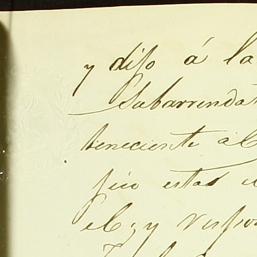 y dijo á la
Subarrendat
teneciente al
pico estas
el; y respo